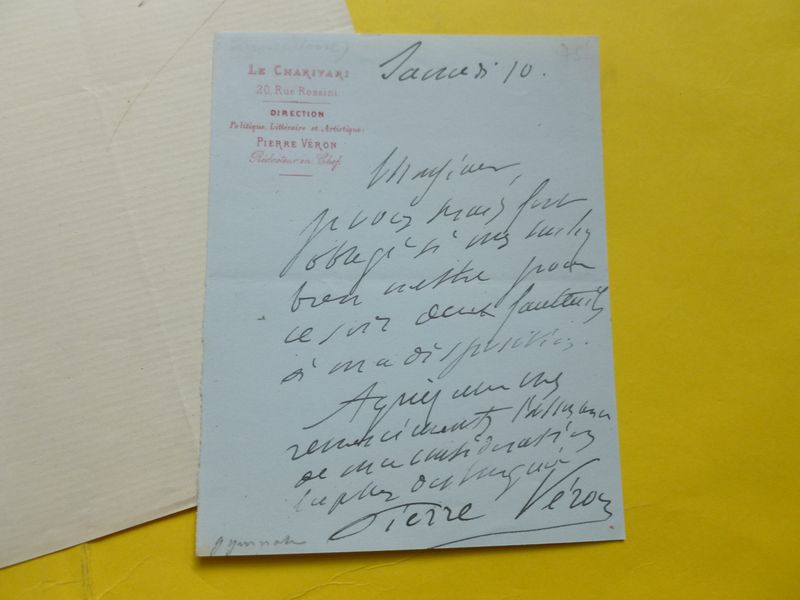 LE CHARIVARI
20, Rue Rossini
DIRECTION
Politique, Littéraire et Artistique:
PIERRE VÉRON
Rédacteur en Chef
Samedi 10.
Monsieur,
je vous serais fort
obligé si vous vouliez
bien mettre pour
ce soir deux fauteuils
à ma disposition.
Agréez avec mes
remerciements l'assurance
de ma considération
la plus distinguée
Pierre Véron
gymnase